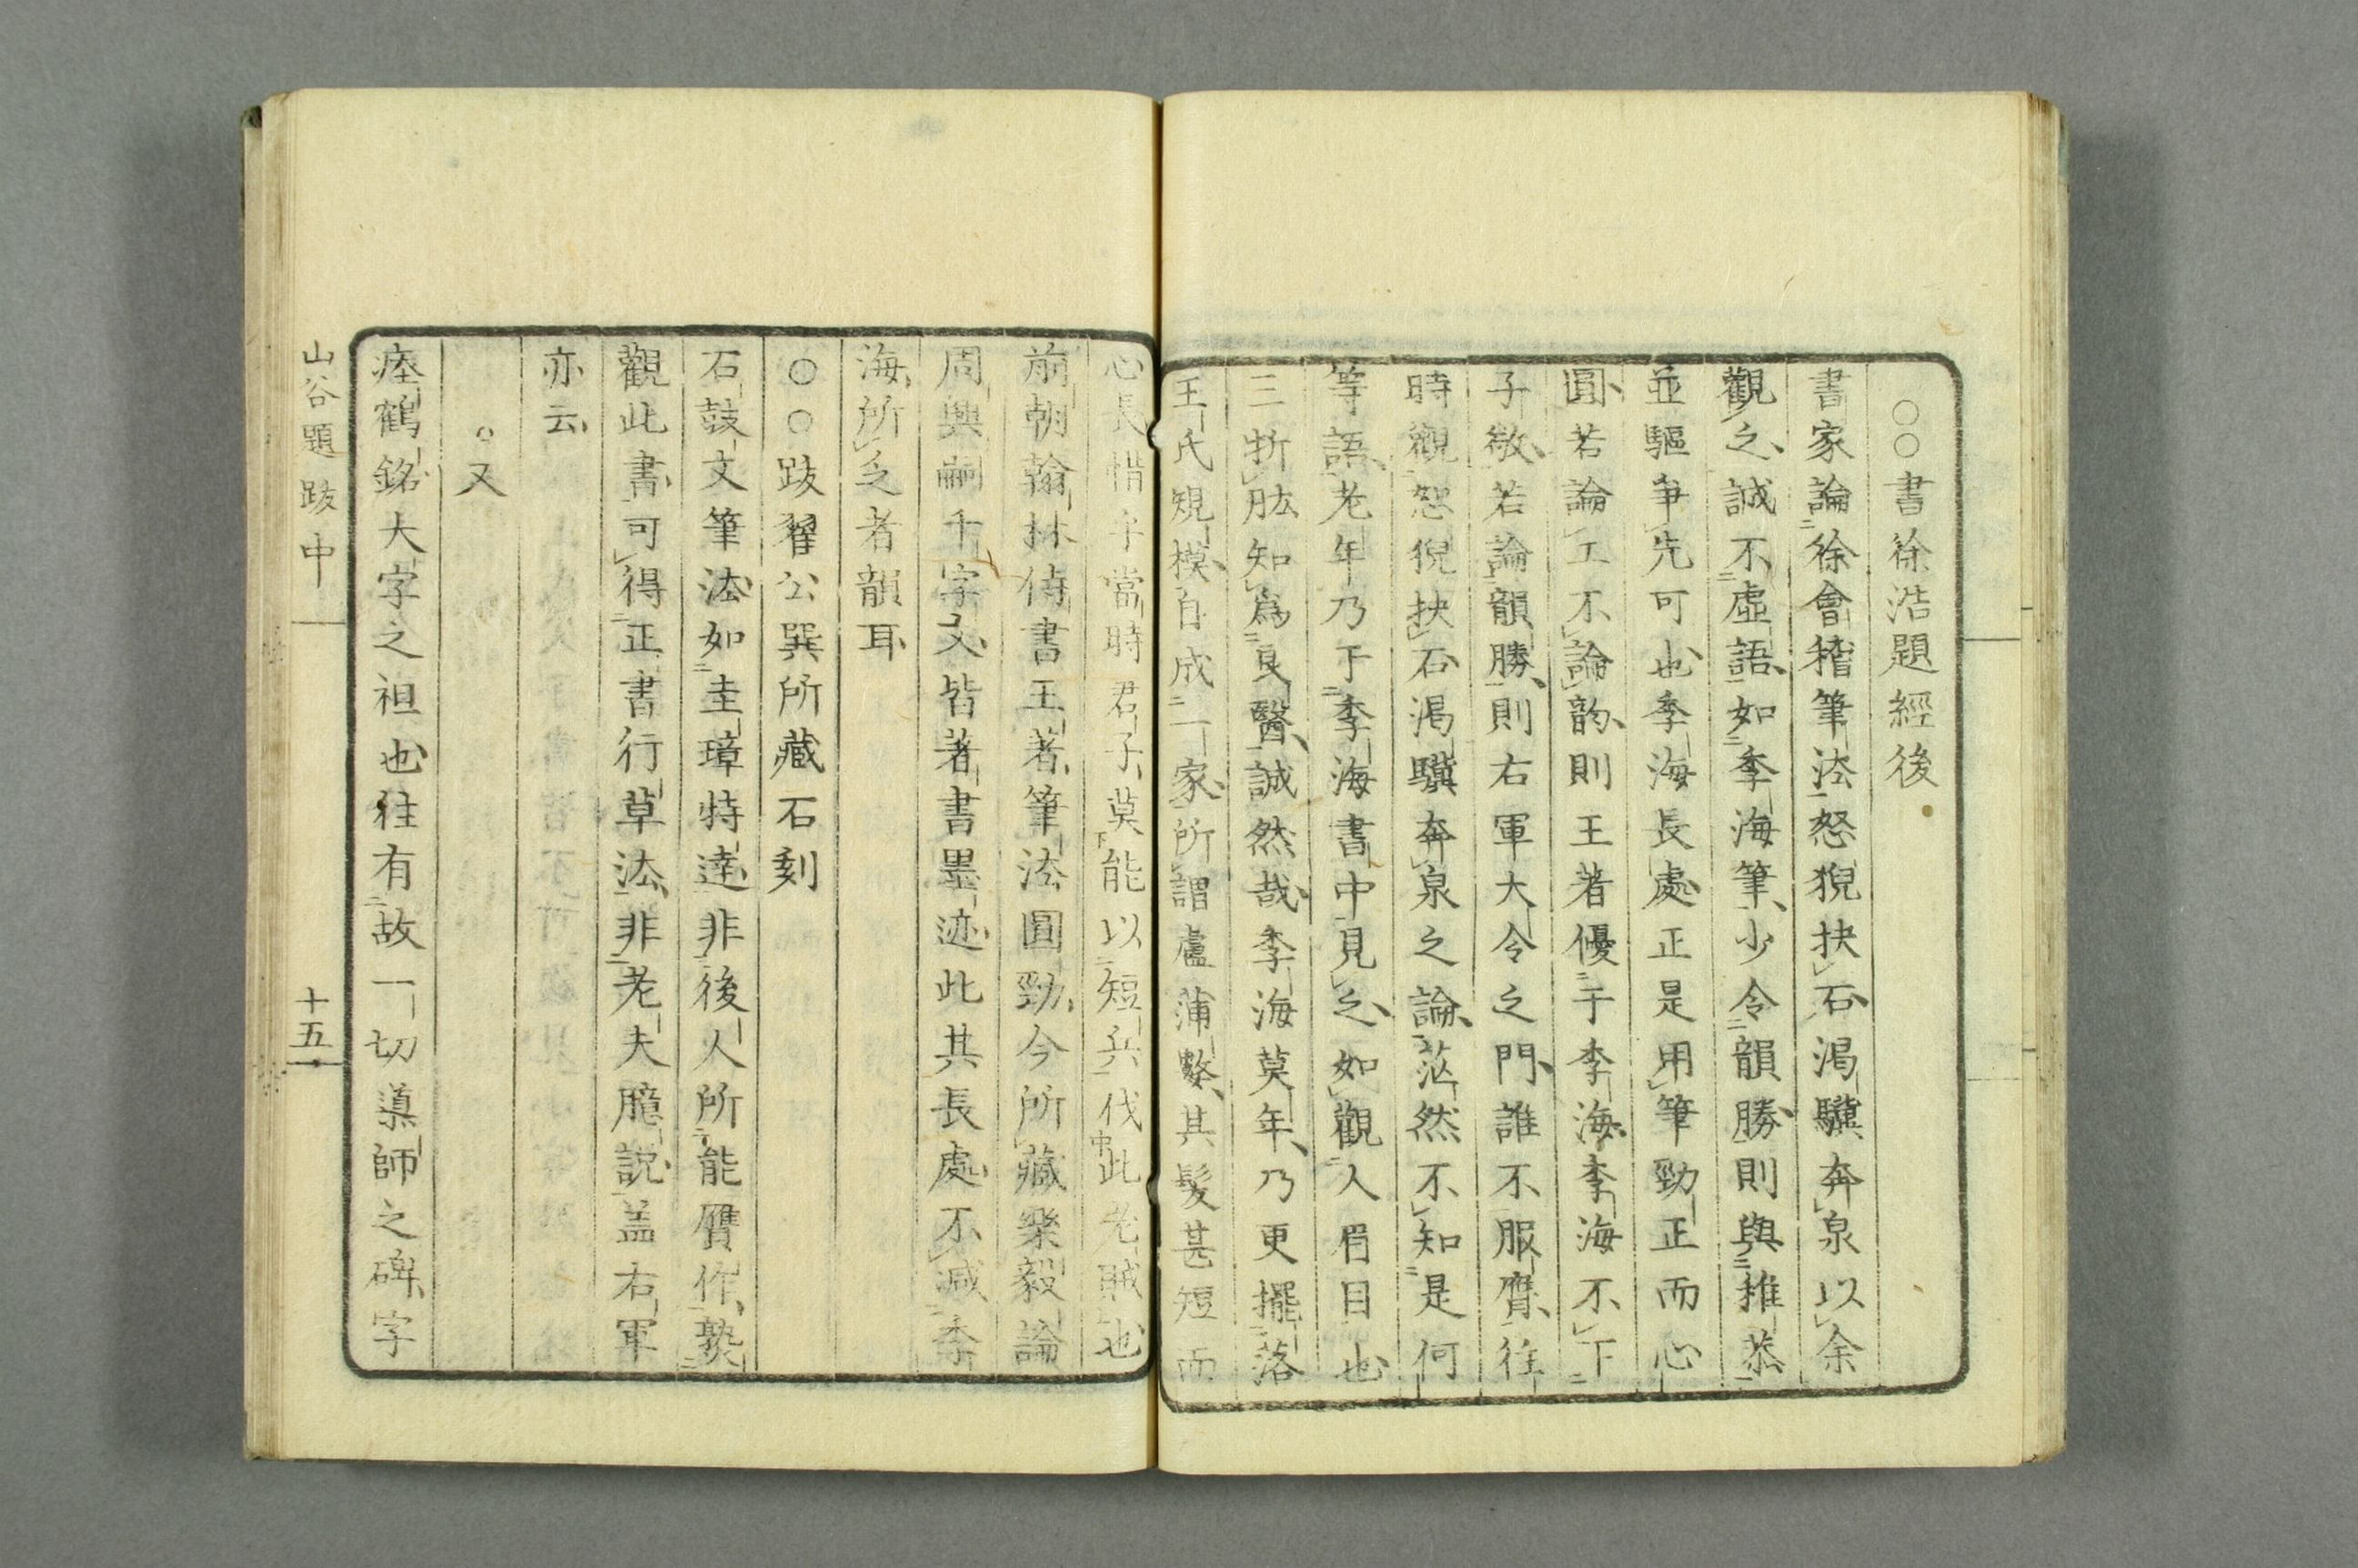 ○○書徐浩題經後
書家論徐會稽筆法怒猊抉石渴驥奔泉以余
觀之誠不虛語如季海筆少令韻勝則與稚恭
並驅爭先可也季海長處正是用筆勁正而心
圓若論工不論韵則王著優于季海季海不下
子敬若論韻勝則右軍大令之門誰不服膺往
時觀怒猊抉石渴驥奔泉之論茫然不知是何
等語老年乃于季海書中見之如觀人眉目也
三折肱知爲良醫誠然哉季海莫年乃更擺落
王氏規模自成一家所謂盧蒲嫳其髮甚短而
心長惜乎當時君子莫能以短兵伐此老賊也
前朝翰林侍書王著筆法圓勁今所藏樂毅論
周興嗣千字文皆著書墨迹此其長處不減季
海所乏者韻耳
○○跋翟公巽所藏石刻
石鼓文筆法如圭璋特達非後人所能贋作熟
觀此書可得正書行草法非老夫臆説盖右軍
亦云
○又
瘞鶴銘大字之祖也往有故一切導師之碑字
山谷題跋中
十五